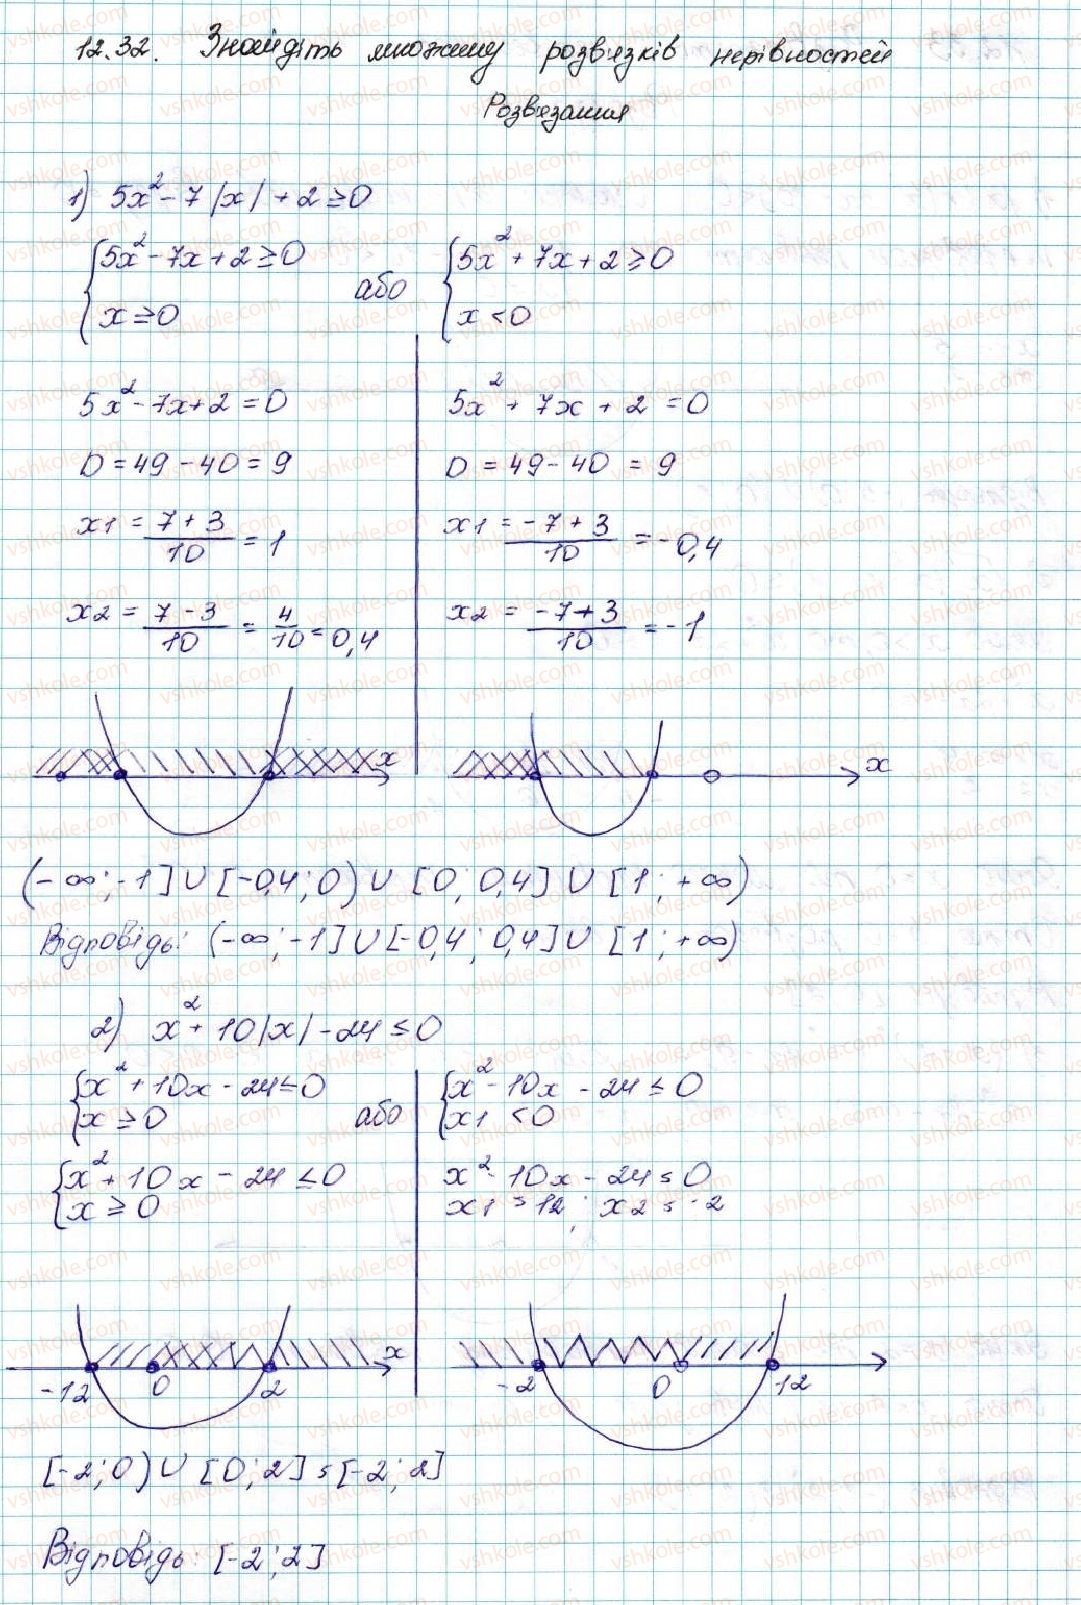 12.32. Знайдіть множину розв'язків нерівностей
Розв'язання
1) 5x² - 7|x| + 2 ≥ 0
{5x² - 7x + 2 ≥ 0
x ≥ 0
або
{5x² + 7x + 2 ≥ 0
x < 0
5x² - 7x + 2 = 0
D = 49 - 40 = 9
x1 = (7 + 3)/10 = 1
x2 = (7 - 3)/10 = 4/10 = 0,4
5x² + 7x + 2 = 0
D = 49 - 40 = 9
x1 = (-7 + 3)/10 = -0,4
x2 = (-7 + 3)/10 = -1
x
x
(-∞; -1] ∪ [-0,4; 0) ∪ [0; 0,4] ∪ [1; +∞)
Відповідь: (-∞; -1] ∪ [-0,4; 0,4] ∪ [1; +∞)
2) x² + 10|x| - 24 ≤ 0
{x² + 10x - 24 ≤ 0
x ≥ 0
або
{x² - 10x - 24 ≤ 0
x1 < 0
{x² + 10x - 24 ≤ 0
x ≥ 0
x² - 10x - 24 = 0
x1 = 12; x2 = -2
-12 0 2 x
-2 0 12
[-2; 0) ∪ [0; 2] = [-2; 2]
Відповідь: [-2; 2]
vshkole.com